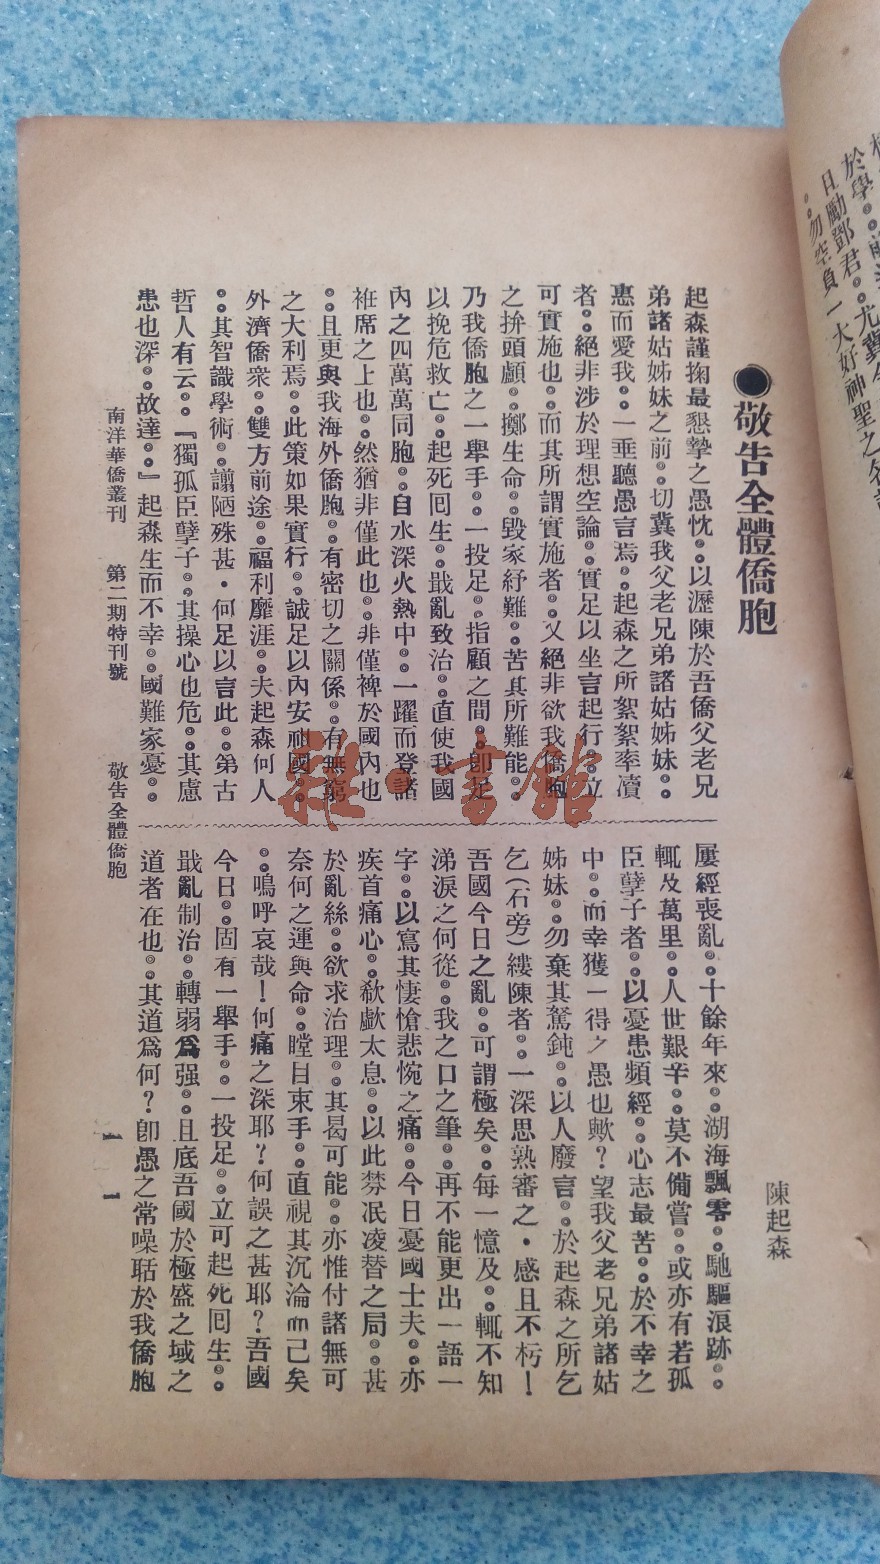 ●敬告全體僑胞
陳起森
起森謹掬最懇摯之愚忱。。以瀝陳於吾僑父老兄
弟諸姑姊妹之前。。切冀我父老兄弟諸姑姊妹。。
惠而愛我。。一垂聽愚言焉。。起森之所絮絮率瀆
者。。絕非涉於理想空論。。實足以坐言起行。。立
可實施也。。而其所謂實施者。。又絕非欲我僑胞
之拚頭顱。。擲生命。。毀家紓難。。苦其所難能。。
乃我僑胞之一舉手。。一投足。。指顧之間。。卽足
以挽危救亡。。起死囘生。。戡亂致治。。直使我國
內之四萬萬同胞。。自水深火熱中。。一躍而登諸
袵席之上也。。然猶非僅此也。。非僅裨於國內也
。。且更與我海外僑胞。。有密切之關係。。有無窮
之大利焉。。此策如果實行。。誠足以內安祖國。。
外濟僑衆。。雙方前途。。福利靡涯。。夫起森何人
。。其智識學術。。謭陋殊甚・何足以言此。。第古
哲人有云。。『獨孤臣孽子。。其操心也危。。其慮
患也深。。故達。。』起森生而不幸。。國難家憂。。
屢經喪亂。。十餘年來。。湖海飄零。。馳驅浪跡。。
輒及萬里。。人世艱辛。。莫不備嘗。。或亦有若孤
臣孽子者。。以憂患頻經。。心志最苦。。於不幸之
中。。而幸獲一得之愚也歟？望我父老兄弟諸姑
姊妹。。勿棄其駑鈍。。以人廢言。。於起森之所乞
乞(石旁)縷陳者。。一深思熟審之・感且不朽！
吾國今日之亂。。可謂極矣。。每一憶及。。輒不知
涕淚之何從。。我之口之筆。。再不能更出一語一
字。。以寫其悽愴悲惋之痛。。今日憂國士夫。。亦
疾首痛心。。欷歔太息。。以此棼泯凌替之局。。甚
於亂絲。。欲求治理。。其曷可能。。亦惟付諸無可
奈何之運與命。。瞠目束手。。直視其沉淪而已矣
。。嗚呼哀哉！何痛之深耶？何誤之甚耶？吾國
今日。。固有一舉手。。一投足。。立可起死囘生。。
戡亂制治。。轉弱爲强。。且底吾國於極盛之域之
道者在也。。其道爲何？卽愚之常噪聒於我僑胞
南洋華僑叢刊 第二期特刊號 敬告全體僑胞 一一
於學。。
且勵鄧君。。尤冀今
。。勿空負一大好神聖之名
雜・書館